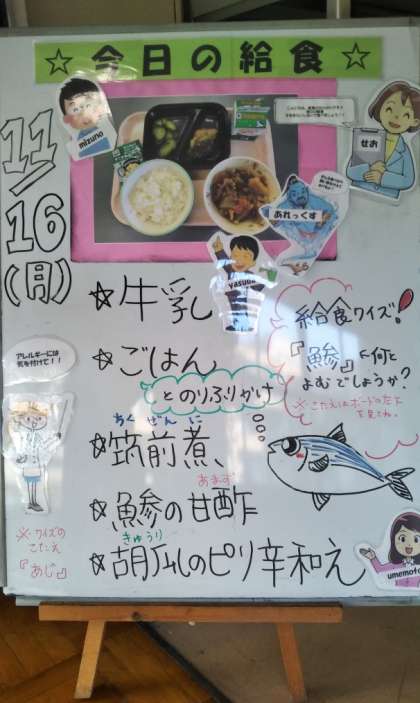 ☆今日の給食☆
11/16
(月)
mizuno
せお
あれっくす
yasuda
☆牛乳
☆ごはん
とのりふりかけ
ちくぜんに
☆筑前煮、
あまず
☆鯵の甘酢
きゅうり
☆胡瓜のピリ辛和え
給食クイズ!
『鯵』←何と
よむでしょうか?
※こたえはボードの左下
を見てね。
アレルギーには
気を付けて!!
※クイズの
こたえ
『あじ』
umemoto